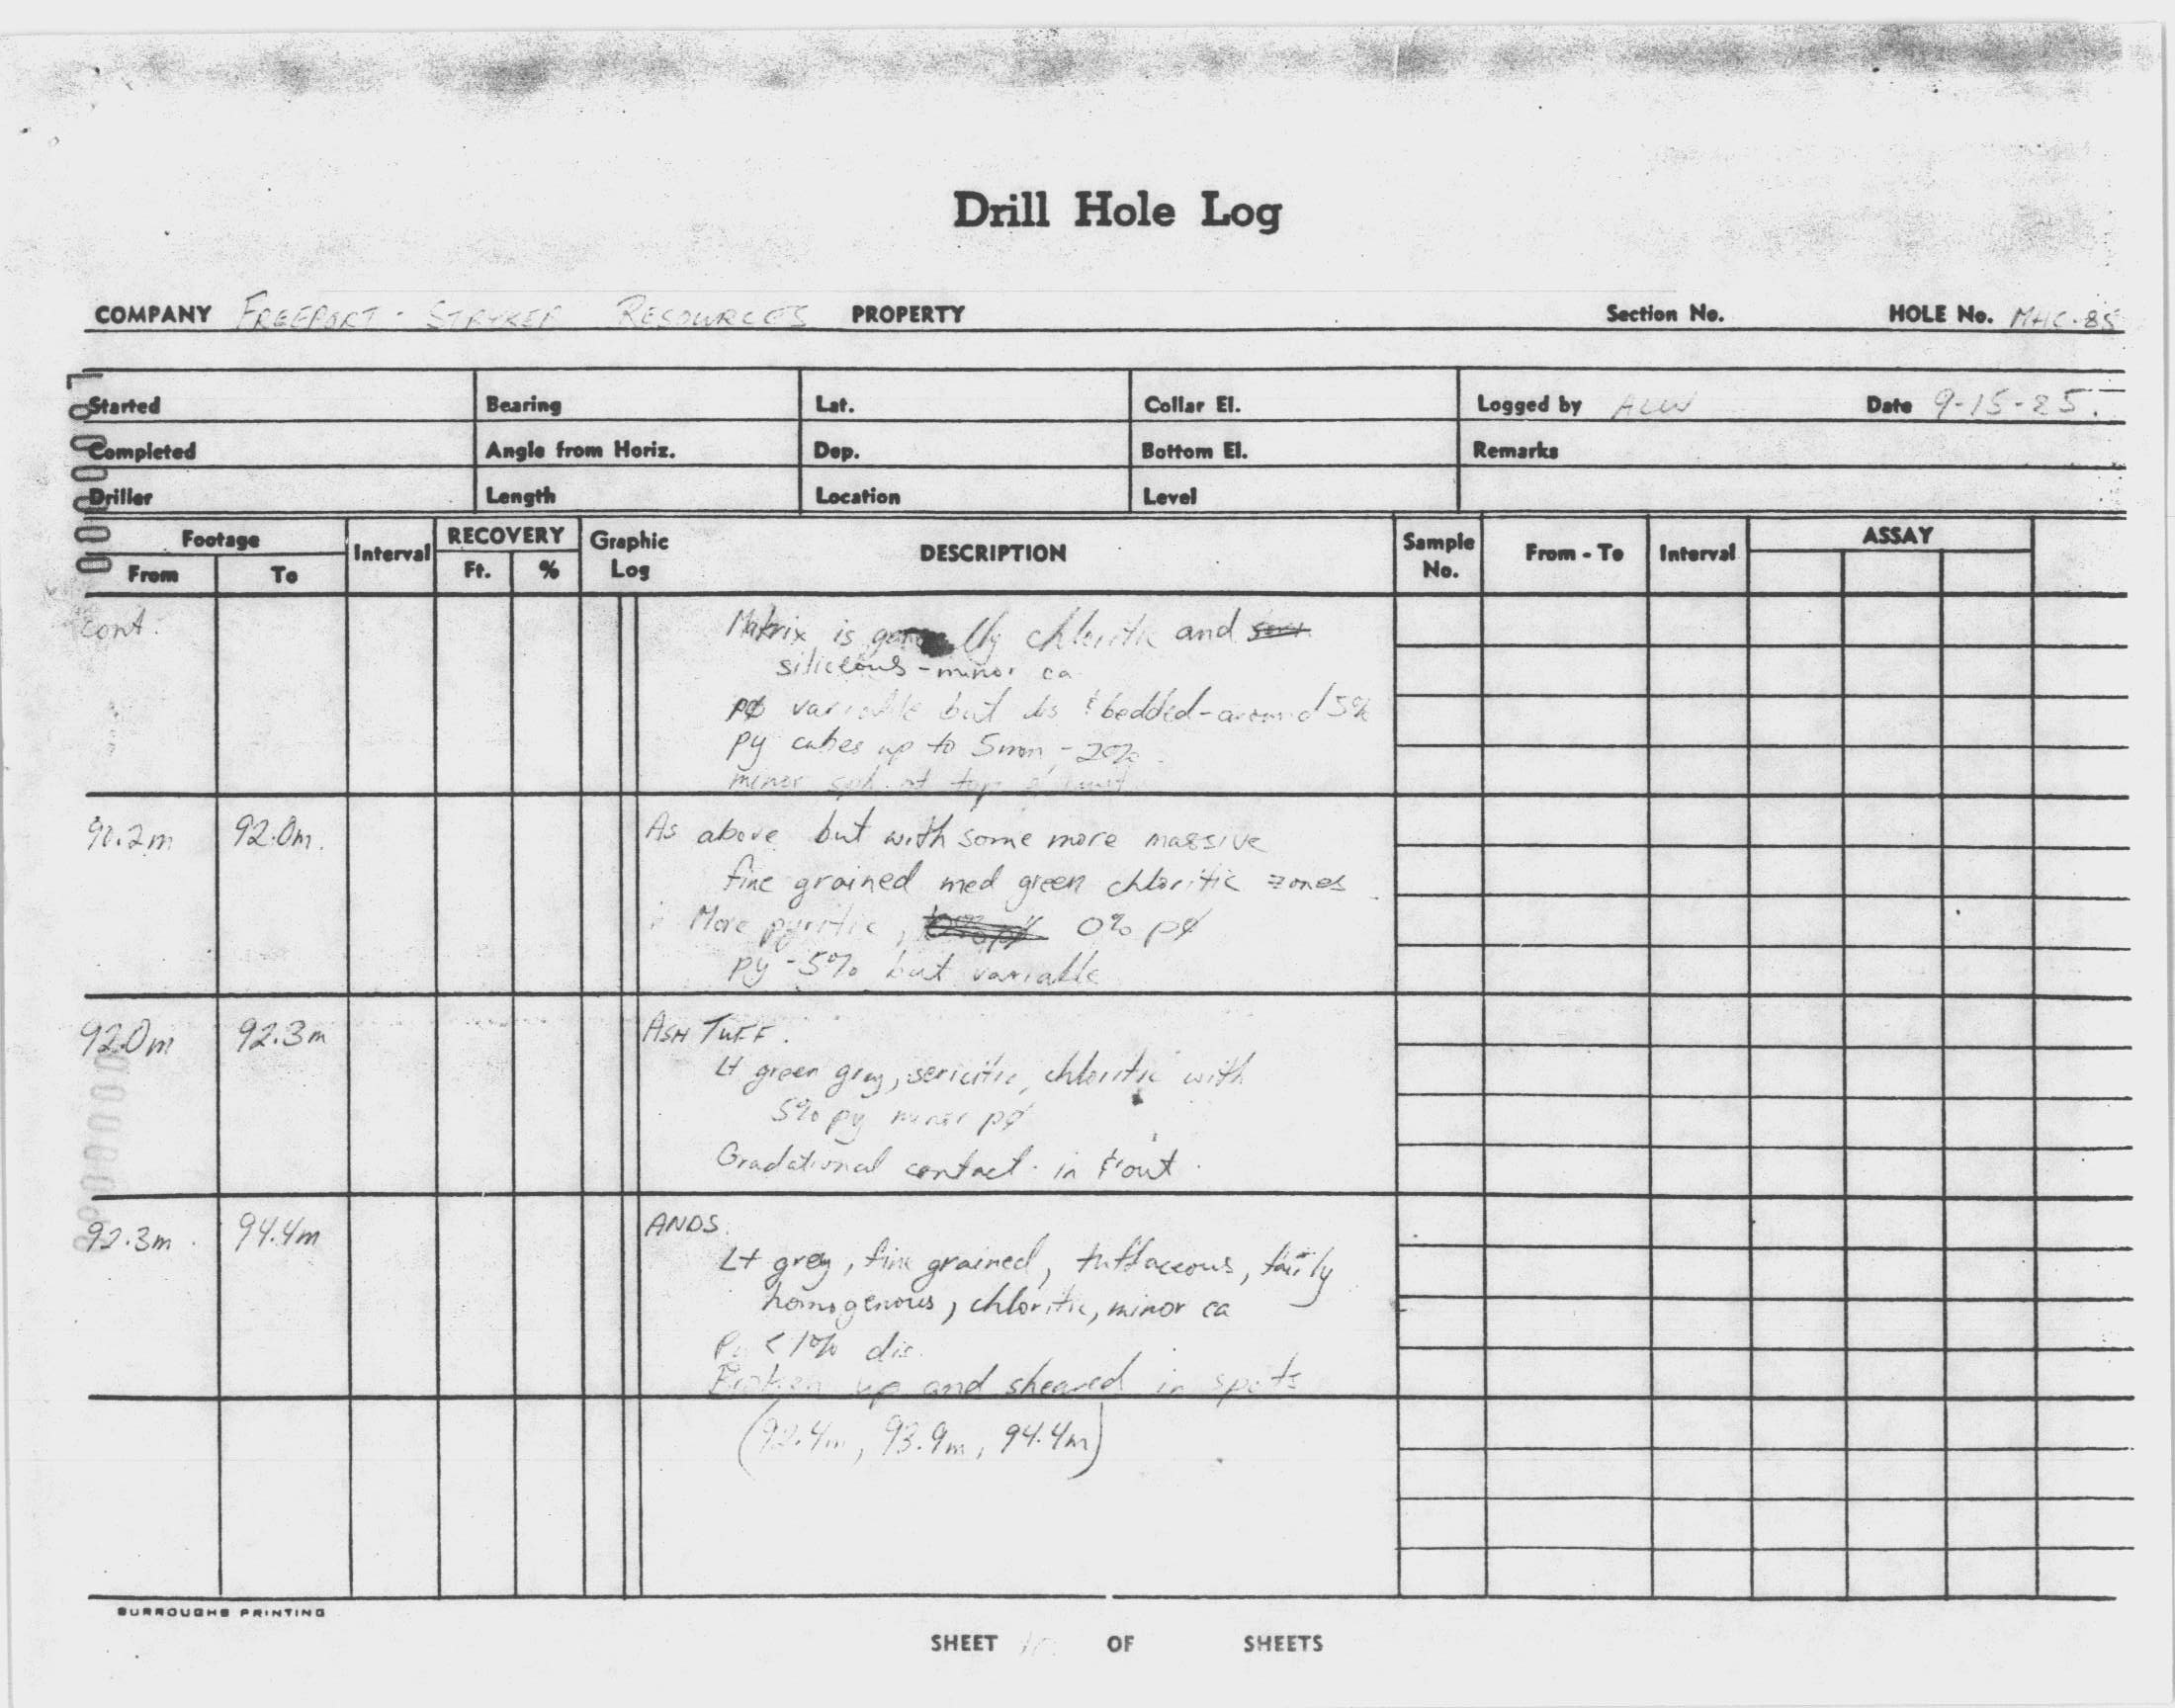 Drill Hole Log
COMPANY FREEPORT - STRYKER RESOURCES PROPERTY Section No. HOLE No. MHC-85
Started Bearing Lat. Collar El. Logged by ALW Date 9-15-85.
Completed Angle from Horiz. Dep. Bottom El. Remarks
Driller Length Location Level
Footage Interval RECOVERY Graphic Log DESCRIPTION Sample No. From - To Interval ASSAY
From To Ft. %
cont. Matrix is generally chloritic and
siliceous - minor ca
pø variable but dis & bedded - around 5%
py cubes up to 5mm - 20%
minor sph at top of unit
90.2m 92.0m. As above but with some more massive
fine grained med green chloritic zones
More pyritic, 0% pø
py - 5% but variable
92.0m 92.3m ASH TUFF.
Lt green grey, sericitic, chloritic with
5% py minor pø
Gradational contact - in & out.
92.3m. 94.4m ANDS.
Lt grey, fine grained, tuffaceous, fairly
homogenous, chloritic, minor ca
< 1% dis.
Broken up and sheared in spots
(92.4m, 93.9m, 94.4m)
BURROUGHS PRINTING
SHEET OF SHEETS